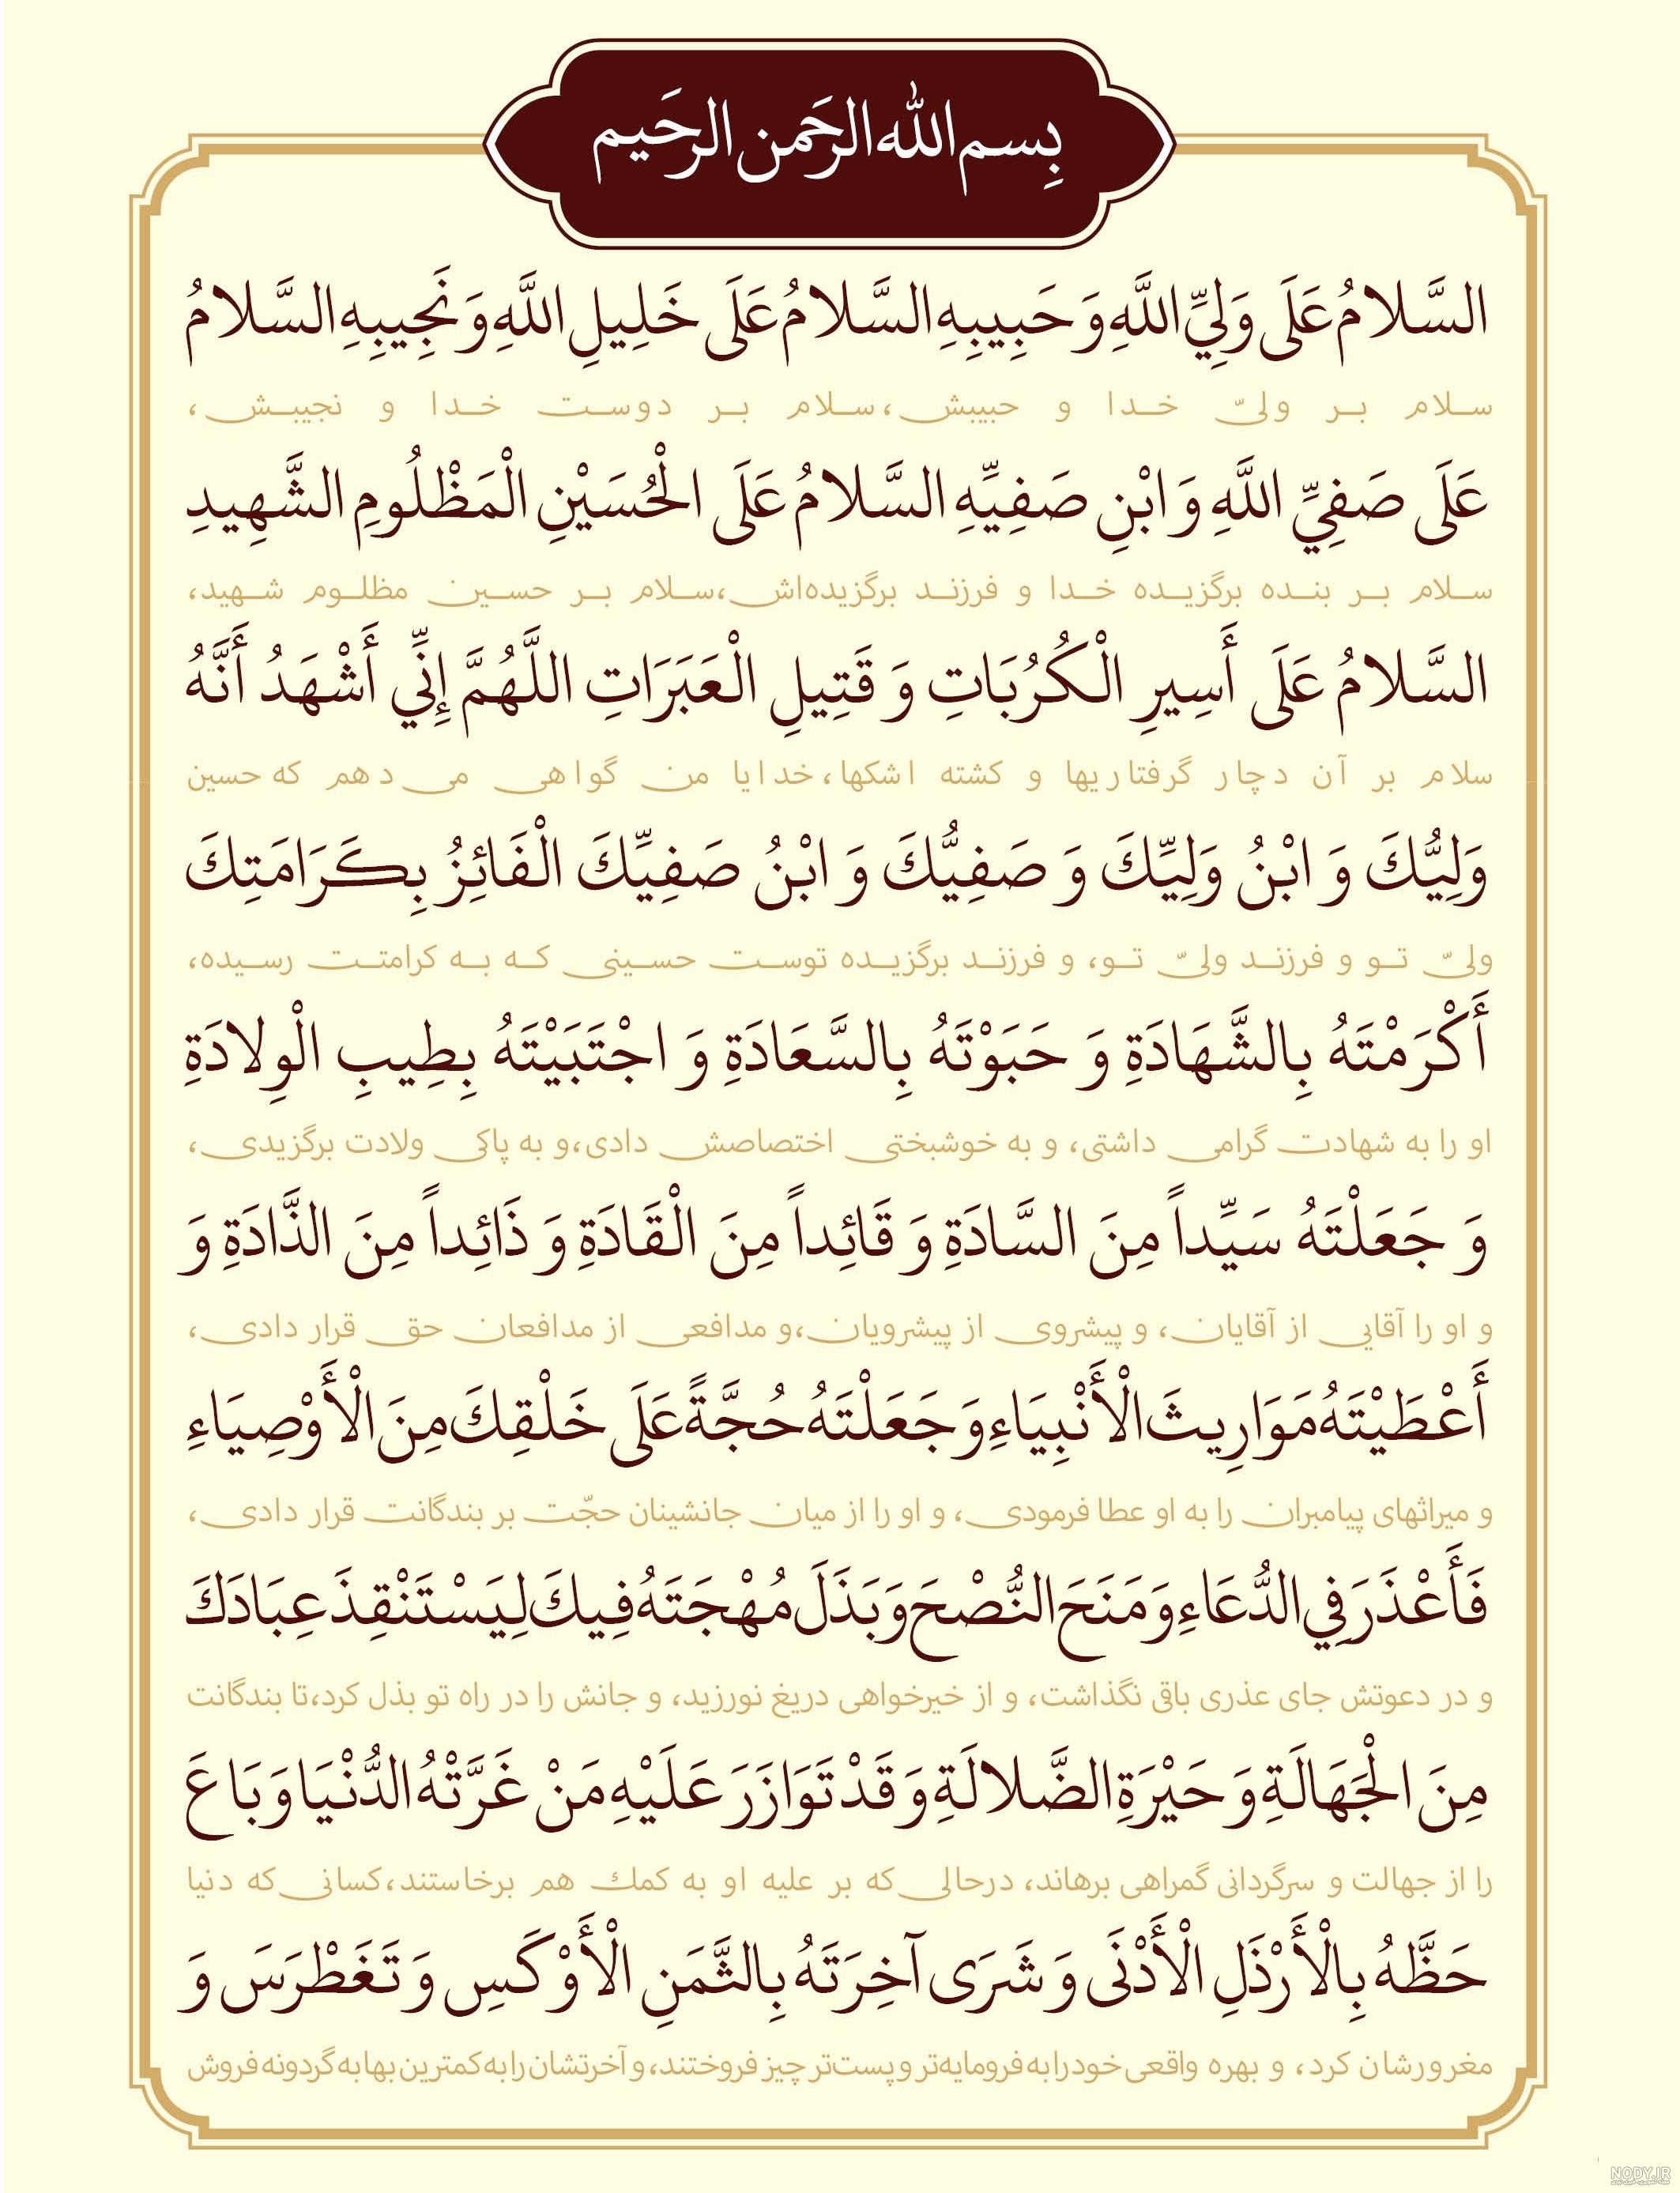 بِسم الله الرَحمن الرَحیم
السَّلامُ عَلَى وَلِيِّ اللَّهِ وَ حَبِيبِهِ السَّلامُ عَلَى خَلِيلِ اللَّهِ وَ نَجِيبِهِ السَّلامُ
سلام بر ولیّ خدا و حبیبش، سلام بر دوست خدا و نجیبش،
عَلَى صَفِيِّ اللَّهِ وَ ابْنِ صَفِيِّهِ السَّلامُ عَلَى الْحُسَيْنِ الْمَظْلُومِ الشَّهِيدِ
سلام بر بنده برگزیده خدا و فرزند برگزیده‌اش، سلام بر حسین مظلوم شهید،
السَّلامُ عَلَى أَسِيرِ الْكُرُبَاتِ وَ قَتِيلِ الْعَبَرَاتِ اللَّهُمَّ إِنِّي أَشْهَدُ أَنَّهُ
سلام بر آن دچار گرفتاریها و کشته اشکها، خدایا من گواهی می‌دهم که حسین
وَلِيُّكَ وَ ابْنُ وَلِيِّكَ وَ صَفِيُّكَ وَ ابْنُ صَفِيِّكَ الْفَائِزُ بِكَرَامَتِكَ
ولیّ تو و فرزند ولیّ تو، و فرزند برگزیده توست حسینی که به کرامتت رسیده،
أَكْرَمْتَهُ بِالشَّهَادَةِ وَ حَبَوْتَهُ بِالسَّعَادَةِ وَ اجْتَبَيْتَهُ بِطِيبِ الْوِلادَةِ
او را به شهادت گرامی داشتی، و به خوشبختی اختصاصش دادی، و به پاکی ولادت برگزیدی،
وَ جَعَلْتَهُ سَيِّداً مِنَ السَّادَةِ وَ قَائِداً مِنَ الْقَادَةِ وَ ذَائِداً مِنَ الذَّادَةِ وَ
و او را آقایی از آقایان، و پیشروی از پیشرویان، و مدافعی از مدافعان حق قرار دادی،
أَعْطَيْتَهُ مَوَارِيثَ الْأَنْبِيَاءِ وَ جَعَلْتَهُ حُجَّةً عَلَى خَلْقِكَ مِنَ الْأَوْصِيَاءِ
و میراثهای پیامبران را به او عطا فرمودی، و او را از میان جانشینان حجّت بر بندگانت قرار دادی،
فَأَعْذَرَ فِي الدُّعَاءِ وَ مَنَحَ النُّصْحَ وَ بَذَلَ مُهْجَتَهُ فِيكَ لِيَسْتَنْقِذَ عِبَادَكَ
و در دعوتش جای عذری باقی نگذاشت، و از خیرخواهی دریغ نورزید، و جانش را در راه تو بذل کرد، تا بندگانت
مِنَ الْجَهَالَةِ وَ حَيْرَةِ الضَّلالَةِ وَ قَدْ تَوَازَرَ عَلَيْهِ مَنْ غَرَّتْهُ الدُّنْيَا وَ بَاعَ
را از جهالت و سرگردانی گمراهی برهاند، درحالی که بر علیه او به کمك هم برخاستند، کسانی که دنیا
حَظَّهُ بِالْأَرْذَلِ الْأَدْنَى وَ شَرَى آخِرَتَهُ بِالثَّمَنِ الْأَوْكَسِ وَ تَغَطْرَسَ وَ
مغرورشان کرد، و بهره واقعی خود را به فرومایه‌تر و پست‌تر چیز فروختند، و آخرتشان را به کمترین بها به گردونه فروش
NODY.IR